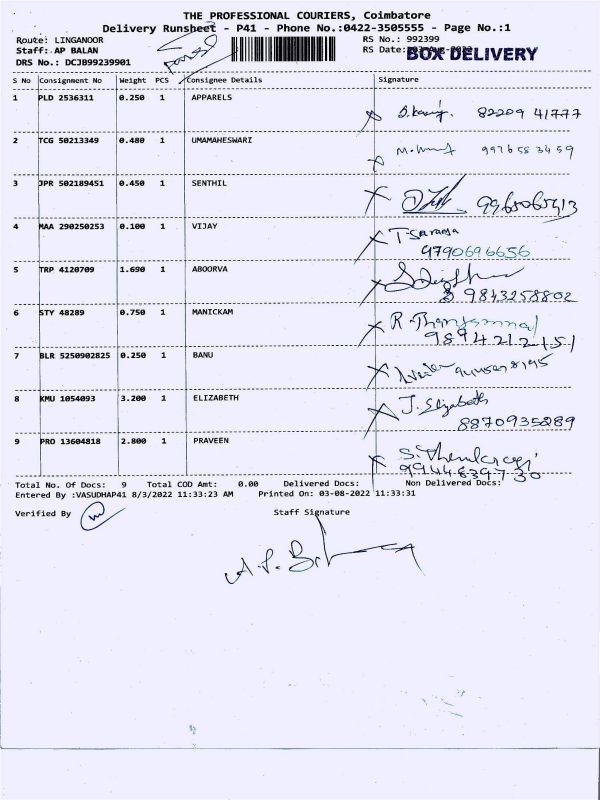 THE PROFESSIONAL COURIERS, Coimbatore
Delivery Runsheet - P41 - Phone No.:0422-3505555 - Page No.:1
Route: LINGANOOR
RS No.: 992399
Staff: AP BALAN
RS Date:
BOX DELIVERY
DRS No.: DCJB99239901
S No Consignment No Weight PCS Consignee Details Signature
1 PLD 2536311 0.250 1 APPARELS 82209 41777
2 TCG 50213349 0.480 1 UMAMAHESWARI 9976583459
3 JPR 502189451 0.450 1 SENTHIL
4 MAA 290250253 0.100 1 VIJAY
9790696656
5 TRP 4120709 1.690 1 ABOORVA
9843258802
6 STY 48289 0.750 1 MANICKAM
9894212151
7 BLR 5250902825 0.250 1 BANU
8 KMU 1054093 3.200 1 ELIZABETH J. Elizabeth
8870935289
9 PRO 13604818 2.800 1 PRAVEEN
Total No. Of Docs: 9 Total COD Amt: 0.00 Delivered Docs: Non Delivered Docs:
Entered By :VASUDHAP41 8/3/2022 11:33:23 AM Printed On: 03-08-2022 11:33:31
Verified By Staff Signature